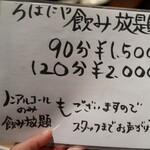 ちはにゃ 飲み放題
90分 ¥1.500
120分 ¥2.000
ノンアルコールのみ飲み放題
もございますので
スタッフまでお声がけ